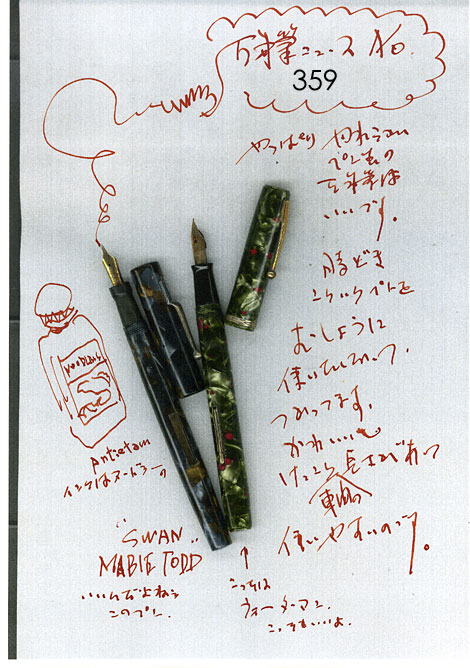 万年筆ニュース No.
359
やっぱり 切れっこい
ペン先の
万年筆は
いいです。
時どき
こういうペンを
むしょうに
使いたくなって、
つかってます。
かわいいし
軸
使いやすいのです。
noodlers
antietam
インクはヌードラーの
"SWAN"
MABIE TODD
いいんだよねぇ
このペン。
↑
こっちは
ウォーターマン。
こっちもいいよ。